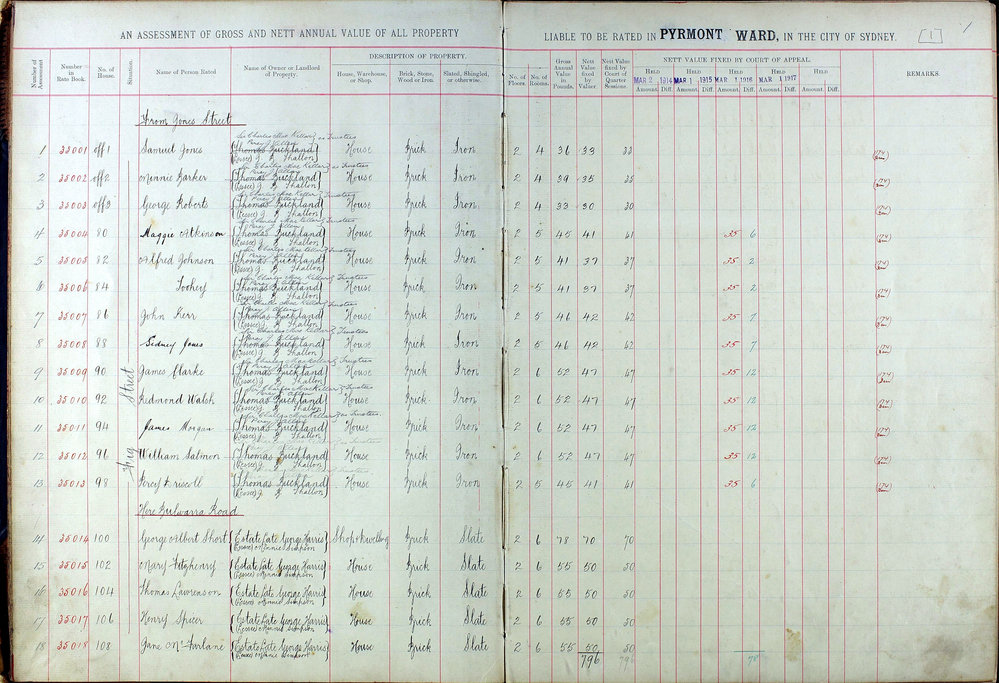 AN ASSESSMENT OF GROSS AND NETT ANNUAL VALUE OF ALL PROPERTY LIABLE TO BE RATED IN PYRMONT WARD, IN THE CITY OF SYDNEY. [1]
Number of Assessment Number in Rate Book. No. of House. Situation. Name of Person Rated Name of Owner or Landlord of Property. DESCRIPTION OF PROPERTY. House, Warehouse, or Shop. Brick, Stone, Wood or Iron. Slated, Shingled, or otherwise. No. of Floors. No. of Rooms. Gross Annual Value in Pounds. Nett Value fixed by Valuer Nett Value fixed by Court of Quarter Sessions. NETT VALUE FIXED BY COURT OF APPEAL. REMARKS.
HELD HELD HELD HELD HELD
MAR 2 1914 MAR 1 1915 MAR 1 1916 MAR 1 1917
Amount. Diff. Amount. Diff. Amount. Diff. Amount. Diff. Amount. Diff.
From Jones Street
Sir Charles MacKellar & as Trustees
Percy J Allen
1 35001 off 1 Samuel Jones Thomas Buckland House Brick Iron 2 4 36 33 33
(Lessee) J. F. Shallon
2 35002 off 2 Minnie Barker Thomas Buckland House Brick Iron 2 4 39 35 35
(Lessee) J. F. Shallon
3 35003 off 3 George Roberts Thomas Buckland House Brick Iron 2 4 33 30 30
(Lessee) J. F. Shallon
4 35004 80 Maggie Atkinson Thomas Buckland House Brick Iron 2 5 45 41 41 35 6
(Lessee) J. F. Shallon
5 35005 82 Alfred Johnson Thomas Buckland House Brick Iron 2 5 41 37 37 35 2
(Lessee) J. F. Shallon
6 35006 84 Tookey Thomas Buckland House Brick Iron 2 5 41 37 37 35 2
(Lessee) J. F. Shallon
7 35007 86 John Kerr Thomas Buckland House Brick Iron 2 5 46 42 42 35 7
(Lessee) J. F. Shallon
8 35008 88 Sidney Jones Thomas Buckland House Brick Iron 2 5 46 42 42 35 7
(Lessee) J. F. Shallon
9 35009 90 James Clarke Thomas Buckland House Brick Iron 2 6 52 47 47 35 12
(Lessee) J. F. Shallon
10 35010 92 Redmond Walsh Thomas Buckland House Brick Iron 2 6 52 47 47 35 12
(Lessee) J. F. Shallon
11 35011 94 James Morgan Thomas Buckland House Brick Iron 2 6 52 47 47 35 12
(Lessee) J. F. Shallon
12 35012 96 William Salmon Thomas Buckland House Brick Iron 2 6 52 47 47 35 12
(Lessee) J. F. Shallon
13 35013 98 Percy Driscoll Thomas Buckland House Brick Iron 2 5 45 41 41 35 6
(Lessee) J. F. Shallon
Fig Street
Here Bulwarra Road
14 35014 100 George Albert Short Estate Late George Harris Shop & Dwellng Brick Slate 2 6 78 70 70
(Lessee) Minnie Simpson
15 35015 102 Mary Fitzhenry Estate Late George Harris House Brick Slate 2 6 55 50 50
(Lessee) Minnie Simpson
16 35016 104 Thomas Lawrenson Estate Late George Harris House Brick Slate 2 6 55 50 50
(Lessee) Minnie Simpson
17 35017 106 Henry Spicer Estate Late George Harris House Brick Slate 2 6 55 50 50
(Lessee) Minnie Simpson
18 35018 108 Jane McFarlane Estate Late George Harris House Brick Slate 2 6 55 50 50
(Lessee) Minnie Simpson
796 796 78